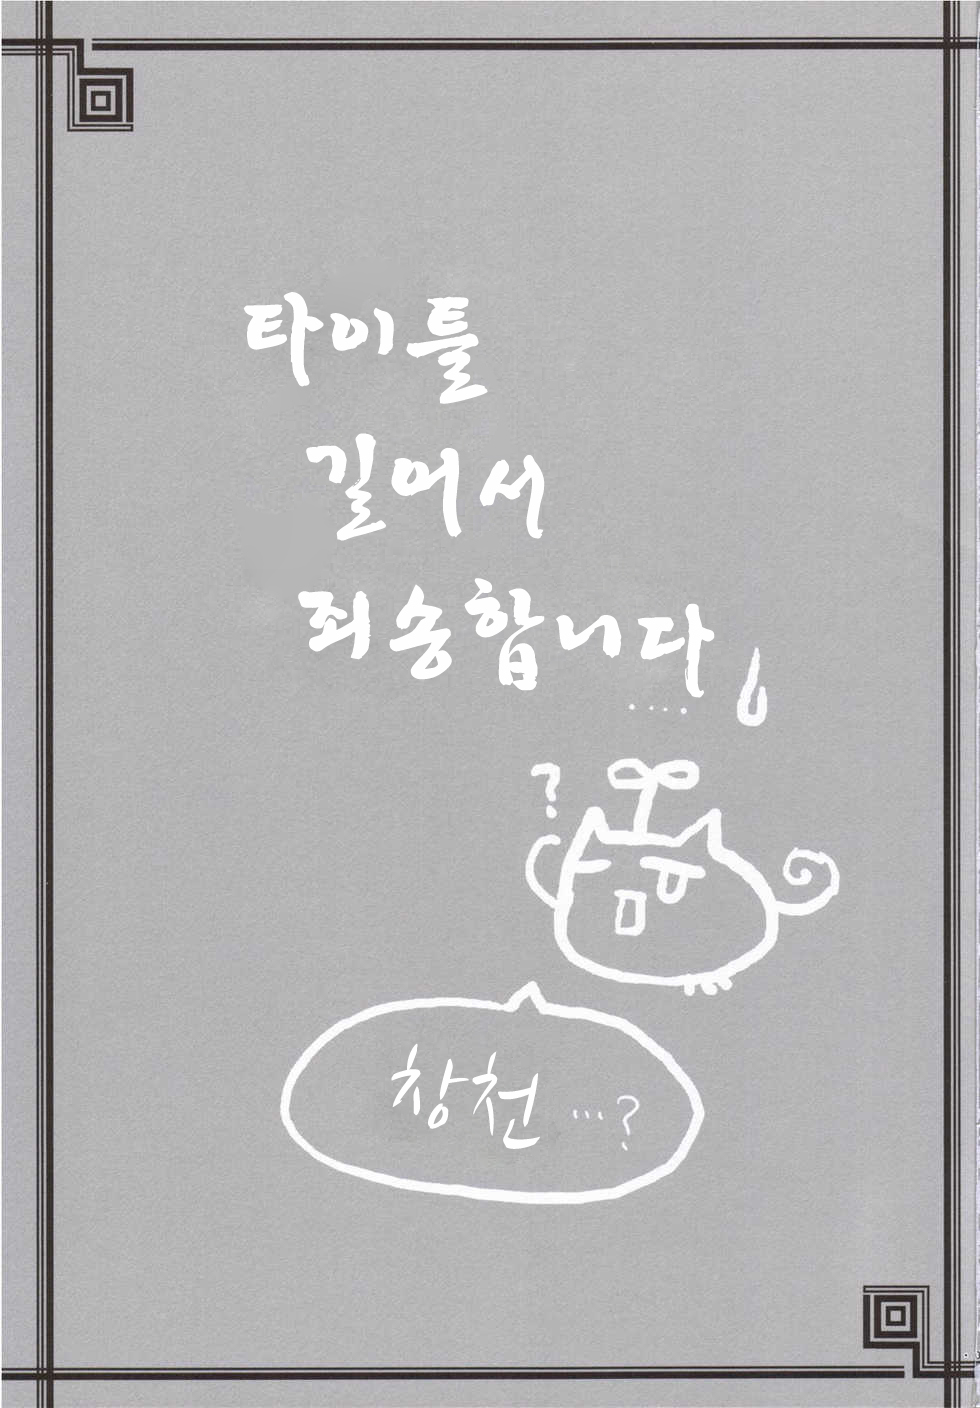 타이틀
길어서
죄송합니다
....
?
창천 ...?